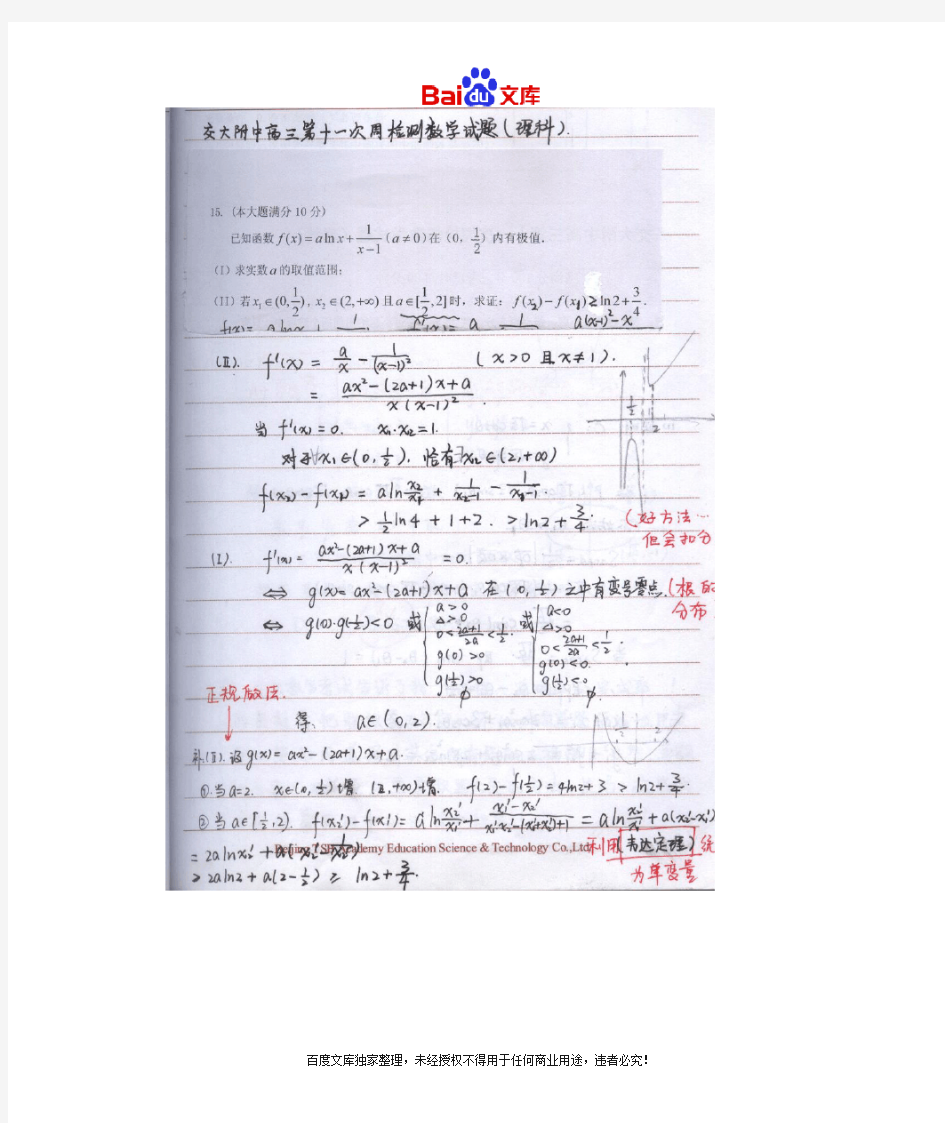 Bai du 文库
交大附中高三第十一次周检测数学试题(理科).
15. (本大题满分10分)
已知函数 f(x)=a ln x+1/(x-1) (a≠0)在(0, 1/2)内有极值.
(I) 求实数a的取值范围;
(II) 若x₁∈(0, 1/2), x₂∈(2,+∞)且a∈[1/2,2]时, 求证: f(x₂)-f(x₁)≥ln2+3/4.
f(x)= a lnx + 1 f'(x)= a 1 a(x-1)²-x
(Ⅱ). f'(x) = a/x - 1/(x-1)² (x>0 且 x≠1).
= (ax²-(2a+1)x+a)/(x(x-1)²).
当 f'(x)=0. x₁·x₂=1.
对于x₁∈(0, 1/2). 恰有x₂∈(2,+∞)
f(x₂)-f(x₁) = a ln x₂/x₁ + 1/(x₂-1) - 1/(x₁-1).
> 1/2 ln4 + 1 + 2. > ln2 + 3/4. (好方法…
但会扣分
(I). f'(x) = (ax²-(2a+1)x+a)/(x(x-1)²) = 0.
⇔ g(x)= ax²-(2a+1)x+a 在(0, 1/2)之中有变号零点. (根的
分布
⇔ g(0)·g(1/2)<0 或 { a>0 △>0 0<(2a+1)/2a<1/2 g(0)>0 g(1/2)>0 φ 或 { a<0 △>0 0<(2a+1)/2a<1/2 g(0)<0 g(1/2)<0 φ.
正规做法.
得. a∈(0,2).
补(Ⅱ). 设g(x)= ax²-(2a+1)x+a.
①.当a=2. x∈(0, 1/2)增. (2,+∞)增. f(2)-f(1/2)=4ln2+3 > ln2+3/4.
②当a∈[1/2,2). f(x₂')-f(x₁')= a ln x₂'/x₁' + (x₁'-x₂')/(x₁'x₂'-(x₁'+x₂')+1) = a ln x₂'/x₁' + a(x₂'-x₁')
= 2a lnx₂' + a(x₂'-1/x₂') 利用(韦达定理)统
Beijing TSE Academy Education Science & Technology Co.,Ltd
> 2aln2 + a(2-1/2) ≥ ln2+3/4. 为单变量
百度文库独家整理,未经授权不得用于任何商业用途,违者必究!